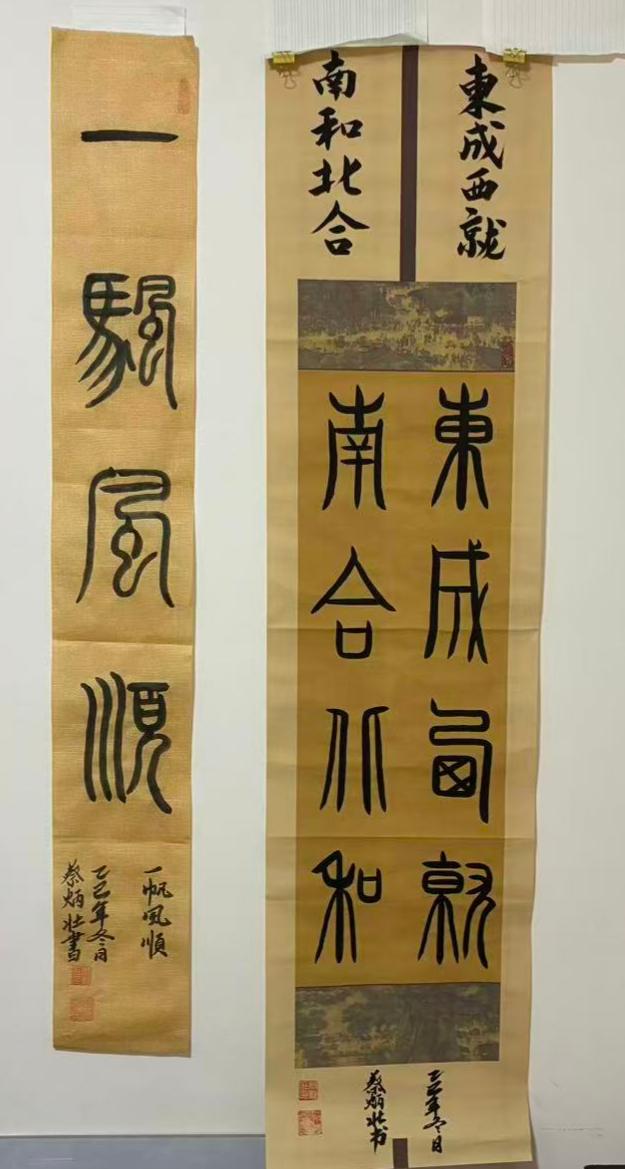 一颿風順
一帆風順
乙巳年冬月
蔡炳壯書
東成西就
南和北合
東成西就
南合北和
乙巳年冬月
蔡炳壯书